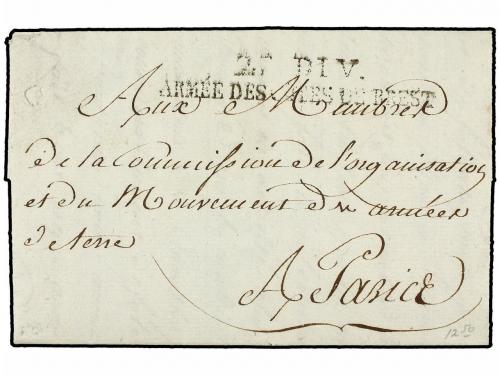 DIV.
ARMÉE DES CÔTES DE BREST
Aux Membres
de la Commission de l'organisation
et du Mouvement des armées
de terre
A Paris
12 50